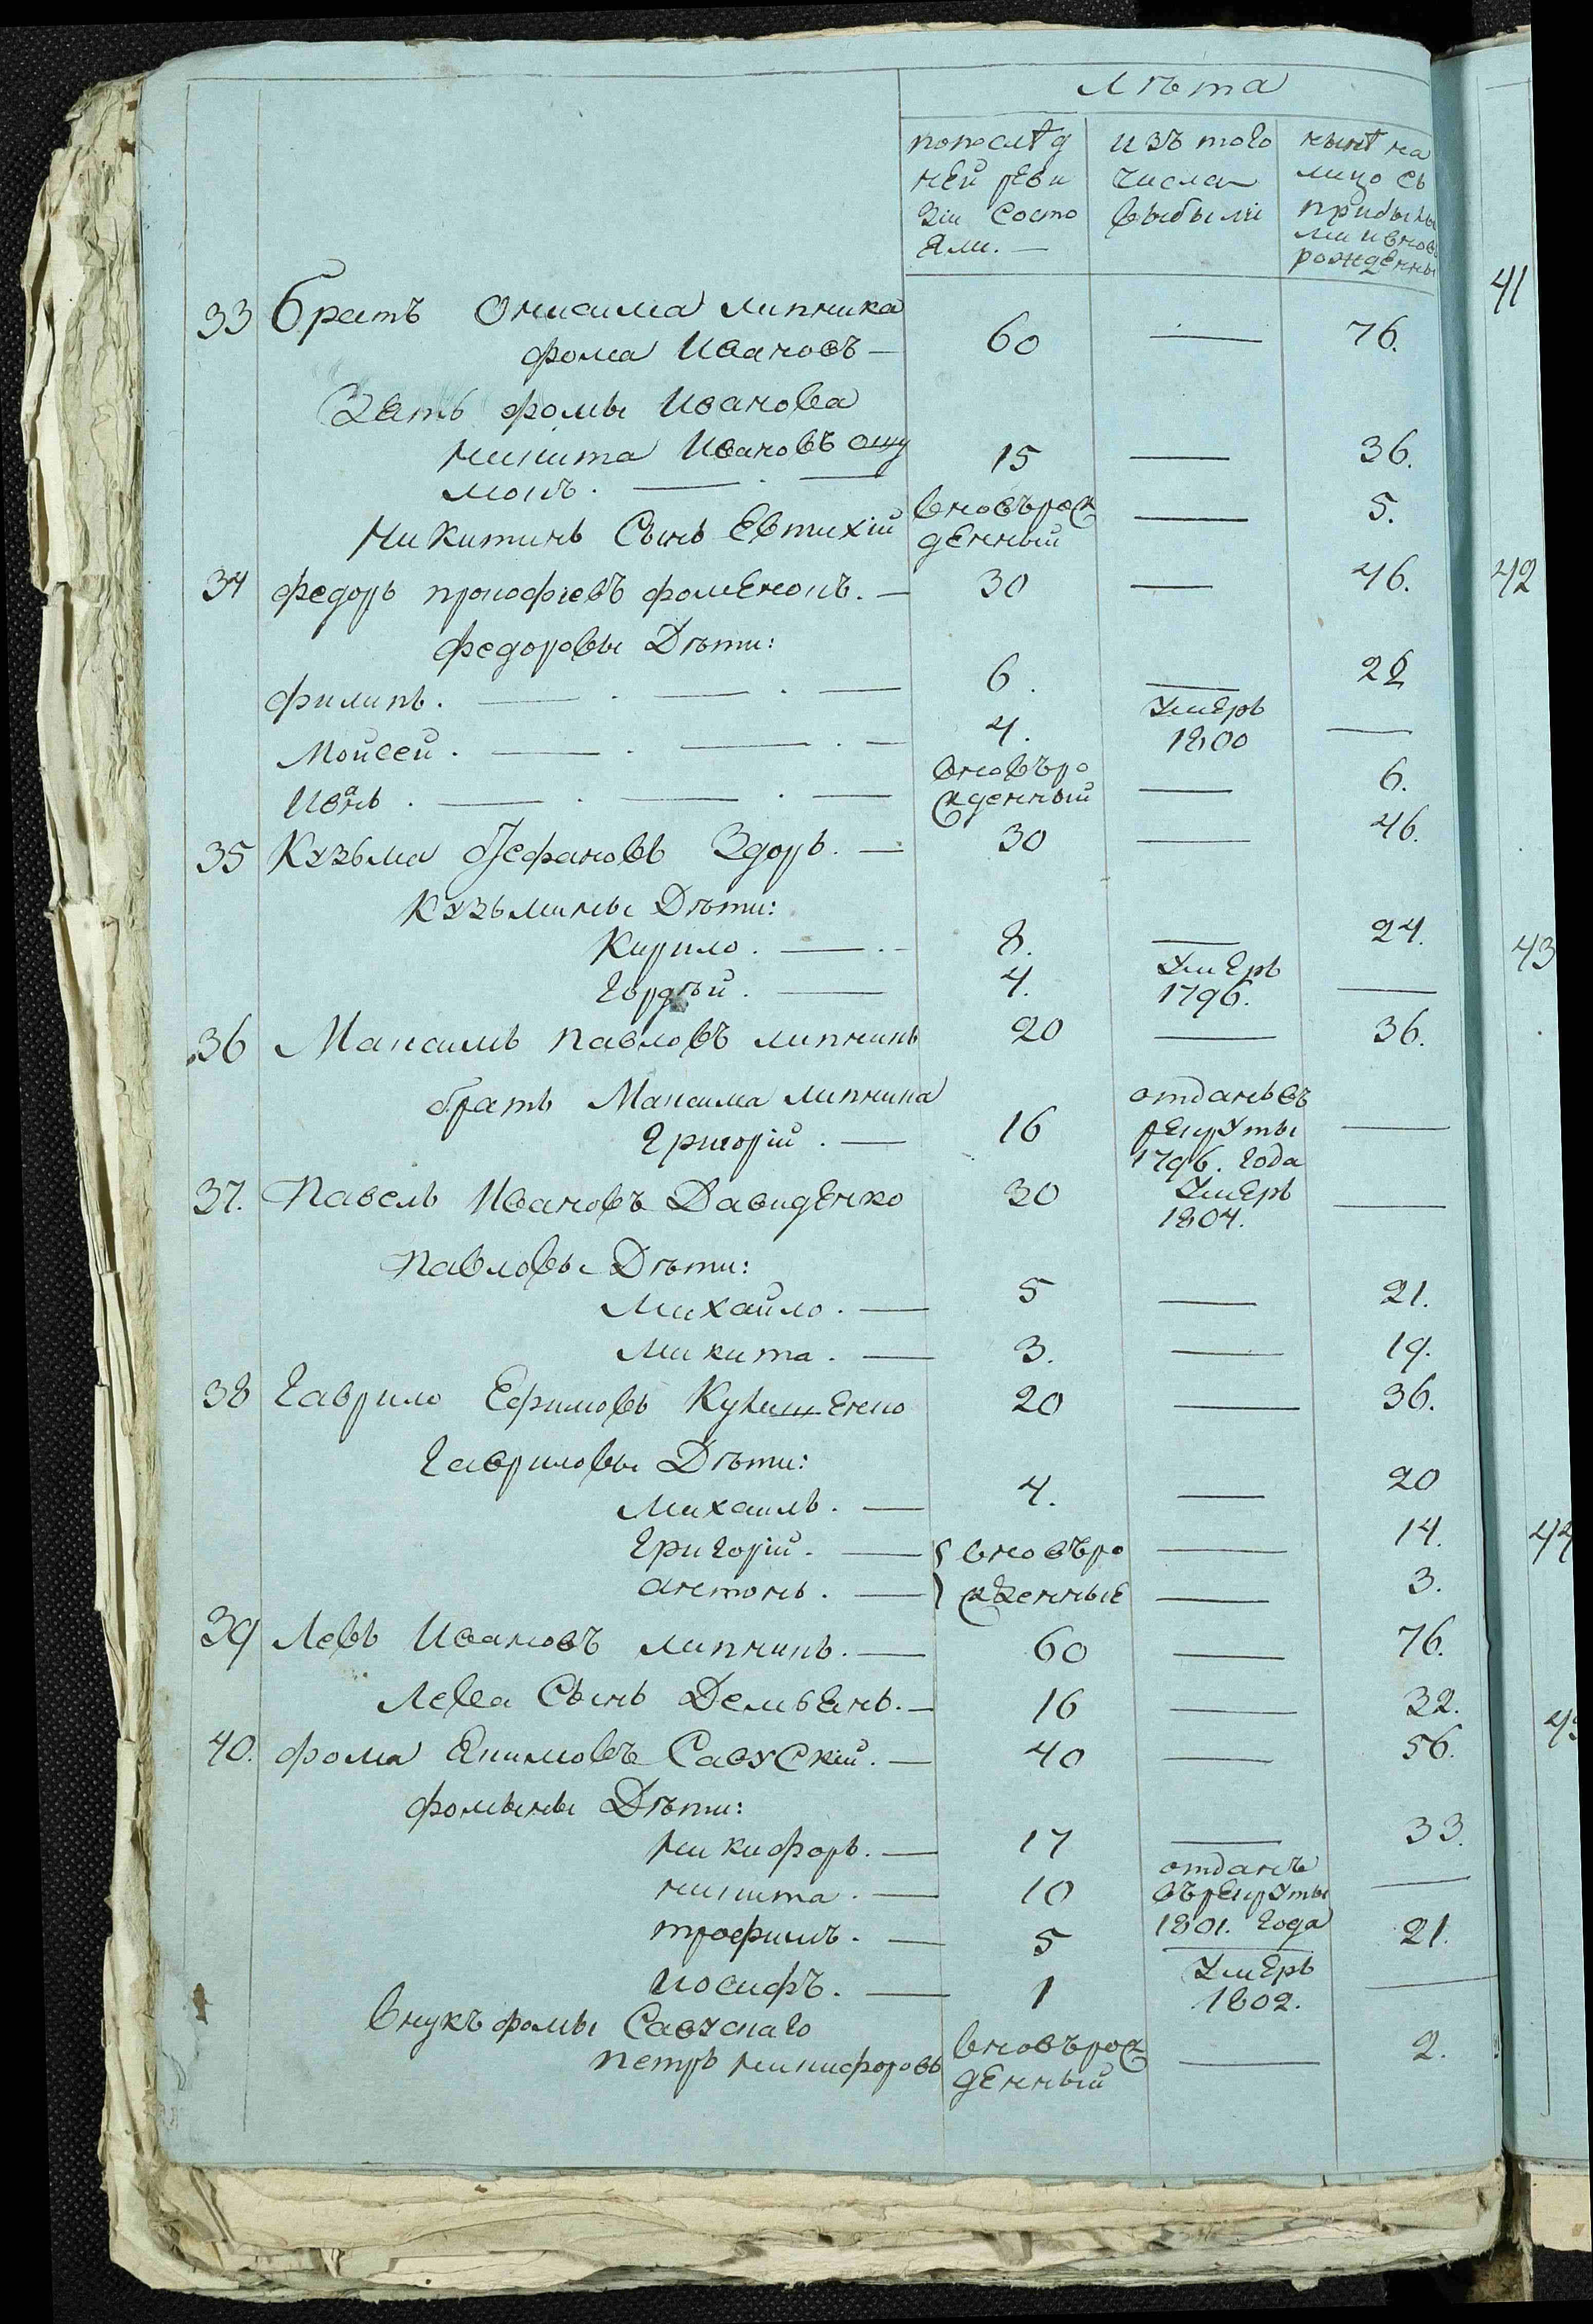 Лѣта
попослѣд ней реви зіи состо яли. —
изъ того числа выбыли
нынѣ на лицо съ прибылы ми ивновь рожденны
33 Братъ Онисима липника
фома Ивановъ — 60 — 76.
Зять фомы Иванова
Никита Ивановъ ошу 15 — 36.
мокъ. — . —
Никитинъ Сынъ Евтихій вновърож денный — 5.
34 федоръ прокофіевъ фоменокъ. — 30 — 46.
федоровы Дѣти:
филипъ. — . — . — 6. — 22
Моисей. — . — . — 4. Умеръ 1800 —
Иванъ. — . — . — вновъро жденный — 6.
35 Кузьма Стефановъ Здоръ. — 30 — 46.
Кузьмины Дѣти:
Кирило. — . - 8. — 24.
Гордѣй. — 4. Умеръ 1796. —
36 Максимъ павловъ липникъ 20 — 36.
братъ Максима липника
Григорій. — 16 отданъвъ рекруты 1796. года —
37. Павелъ Ивановъ Давиденко 30 Умеръ 1804. —
Павловы Дѣти:
Михайло. — 5 — 21.
Микита. — 3. — 19.
38 Гаврило Ефимовъ Кулишенко 20 — 36.
Гавриловы Дѣти:
Михаилъ. — 4. — 20
Григорій. — вновъро — 14.
антонъ. — жденные — 3.
39 Левъ Ивановъ липникъ. — 60 — 76.
Лева Сынъ Демьянъ. — 16 — 32.
40. фома Якимовъ Савускій. — 40 — 56.
фомины Дѣти:
Никифоръ. — 17 — 33.
никита. — 10 отданъ върекруты 1801. года —
трофимъ. — 5 — 21.
Иосифъ. — 1 Умеръ 1802. —
Внукъ фомы Савускаго
петръ никифоровъ вновърож денный — 2.
41
42
43